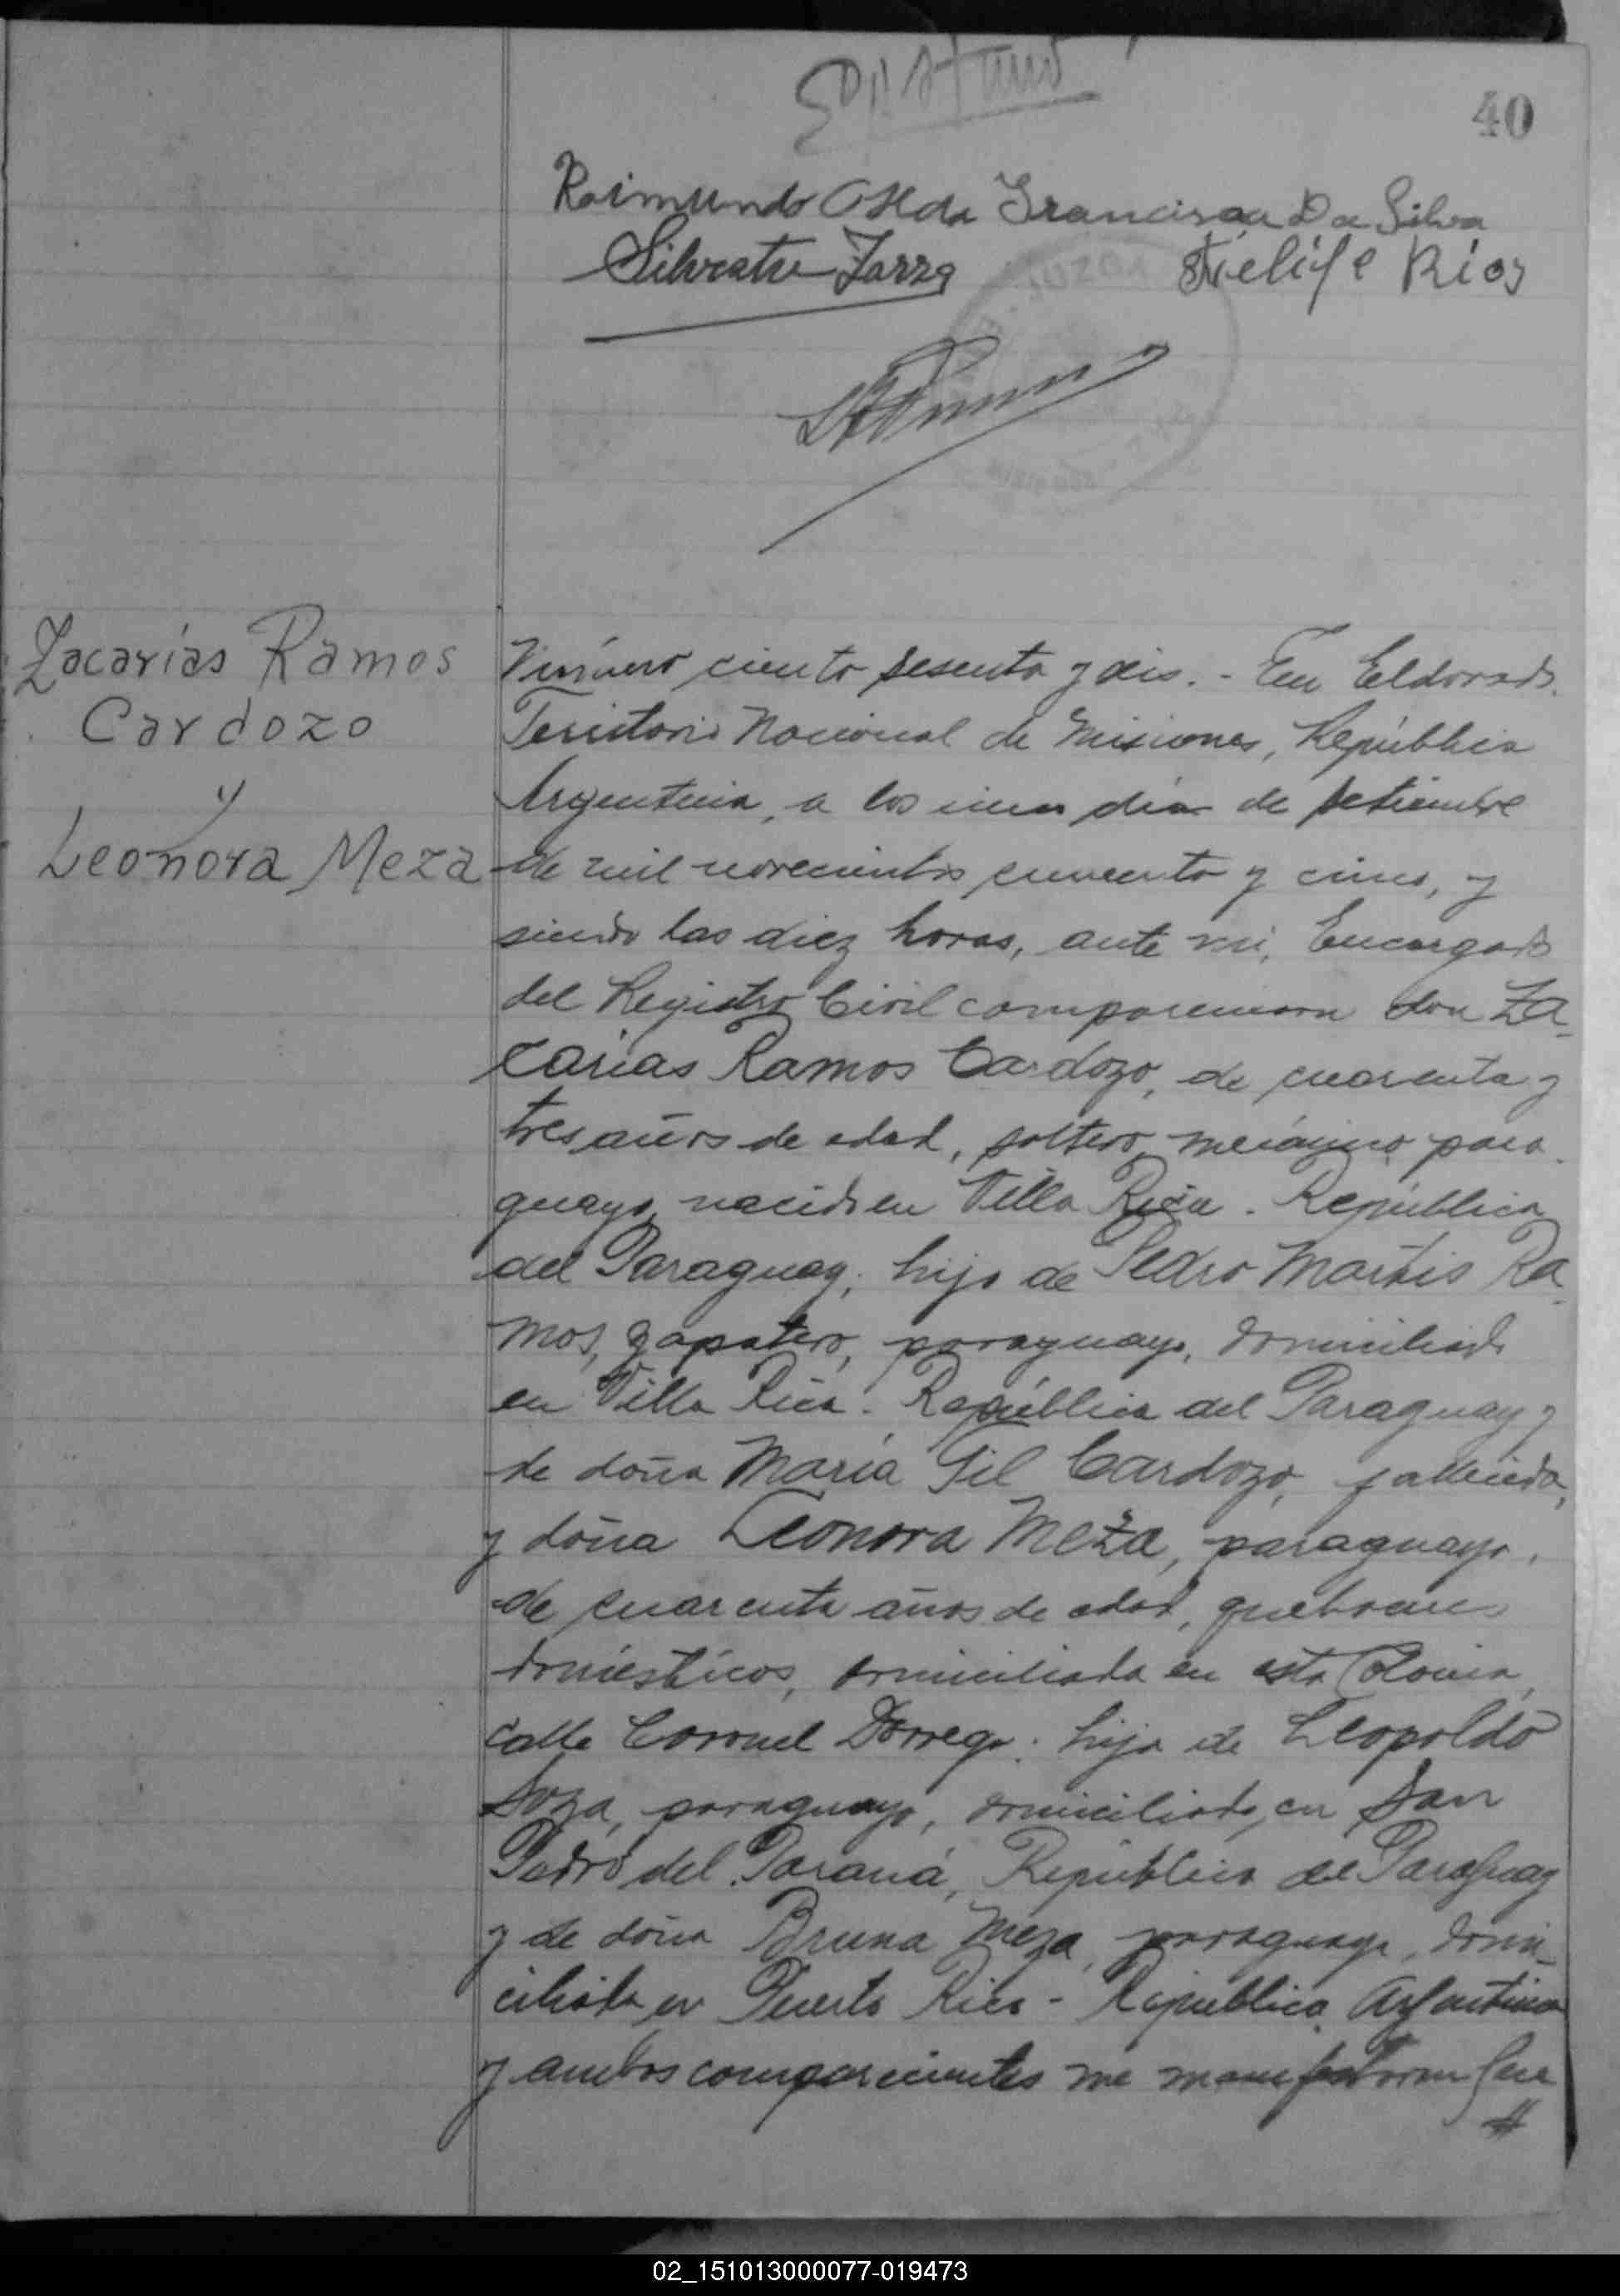 40
Raimundo Francisca Da Silva
Silvestre Felipe Rios
Zacarías Ramos
Cardozo
y
Leonora Meza
Número ciento sesenta y dós. - En Eldorado.
Territorio Nacional de Misiones, República
Argentina, a los cinco día de setiembre
de mil novecientos y cinco, y
siendo las diez horas, ante mi, Encargado
del Registro Civil comparecieron don Za-
carias Ramos Cardozo, de cuarenta y
tres años de edad, soltero, mecánico para-
guayo, nacido en Villa Rica. República
del Paraguay; hijo de Pedro Ra-
mos, zapatero, paraguayo, domiciliado
en Villa Rica. República del Paraguay y
de doña María Gil Cardozo, fallecida,
y doña Leonora Meza, paraguaya,
de cuarenta años de edad, quehaceres
domésticos, domiciliada en esta Colonia,
calle Coronel Dorrego: hija de Leopoldo
Soza, paraguayo, domiciliado, en San
Pedro del Paraná, República del Paraguay
y de doña Bruna Meza, paraguaya, domi-
ciliada en Puerto Rico - República Argentina
y ambos comparecientes me manifestaron que
#
02_151013000077-019473